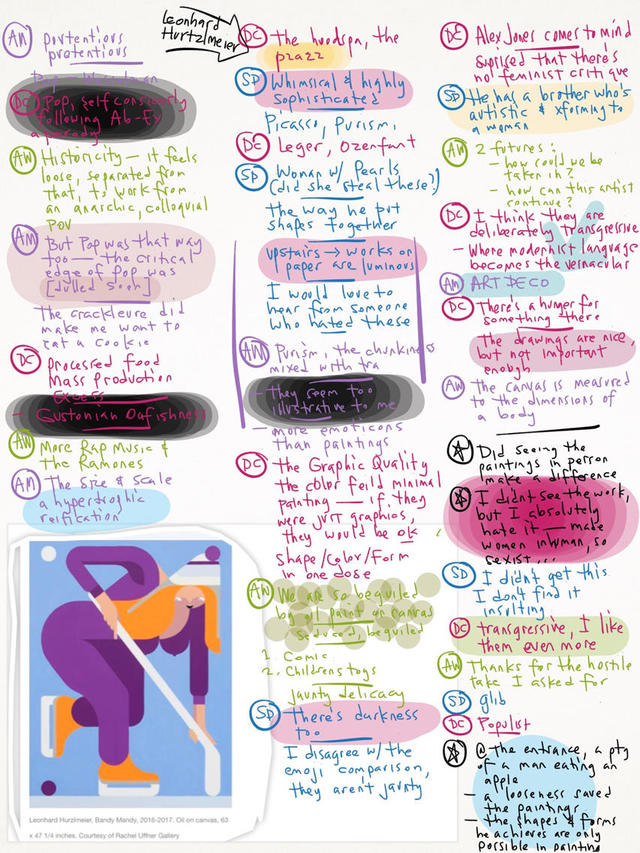 Leonhard
Hurtzlmeier
AM portentious
pretentious
DC Pop, self consciously
following Ab-Ex
a parody
AW Historicity — it feels
loose, separated from
that, to work from
an anarchic, colloquial
POV
AM But Pop was that way
too — the critical
edge of Pop was
The crackleure did
make me want to
eat a cookie
DC processed food
Mass Production
excess
- Gustonian Oafishness
AW More Rap Music &
the Ramones
AM The size & scale
a hypertrophic
reification
Leonhard Hurzlmeier, Bandy Mandy, 2016-2017. Oil on canvas, 63
x 47 1/4 inches. Courtesy of Rachel Uffner Gallery
DC The hoodspa, the
pzazz
SD Whimsical & highly
sophisticated
Picasso, Purism,
DC Leger, Ozenfant
SD Woman w/ Pearls
(did she steal these?)
the way he put
shapes together
upstairs → works on
paper are luminous
I would love to
hear from someone
who hated these
AM Purism, the chunkiness
mixed with tra
- they seem too
illustrative to me
- more emoticons
than paintings
DC the Graphic Quality
the color feild minimal
painting — if they
were just graphics,
they would be ok
shape/color/form
in one dose
AW We are so beguiled
by oil paint on canvas
seduced, beguiled
1. Comic
2. Childrens toys
jaunty delicacy
SD There's darkness
too
I disagree w/ the
emoji comparison,
they aren't jaunty
DC Alex Jones comes to mind
suprised that there's
not feminist critique
SD He has a brother who's
autistic & xforming to
a woman
AW 2 futures:
- how could we be
taken in?
- how can this artist
continue?
DC I think they are
deliberately transgressive
- Where modernist language
becomes the vernacular
AM ART DECO
DC There's a hunger for
something there
The drawings are nice,
but not important
enough
AW The canvas is measured
to the dimensions of
a body
Did seeing the
paintings in person
make a difference
I didnt see the work,
but I absolutely
hate it — made
women inhuman, so
sexist...
SD I didn't get this
I don't find it
insulting
DC transgressive, I like
them even more
AW Thanks for the hostile
take I asked for
SD glib
DC Populist
@ the entrance, a ptg
of a man eating an
apple
- a looseness saved
the paintings
- the shapes & forms
he achieves are only
possible in painting